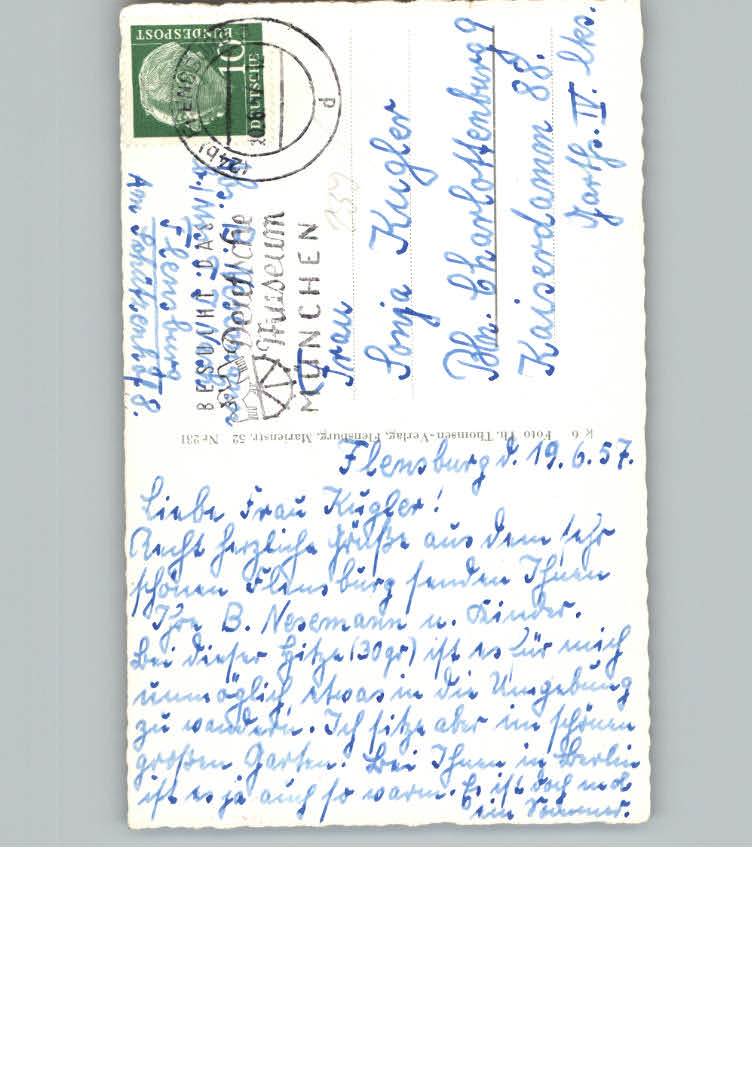 Flensburg d. 19.6.57.
Liebe Frau Kugler!
Recht herzliche Grüße aus dem sehr
schönen Flensburg senden Ihnen
Ihre B. Nesemann u. Kinder.
Bei dieser Hitze (30gr) ist es für mich
unmöglich, etwas in die Umgebung
zu wandern. Ich sitze aber im schönen
großen Garten. Bei Ihnen in Berlin
ist es ja auch so warm. Es ist doch mal
ein Sommer.
Frau
Sonja Kugler
Bln. Charlottenburg 9
Kaiserdamm 88.
Garth. IV. lks.
Flensburg
Am Schützenhof 8.
BESUCHT DAS
Deutsche
Museum
MÜNCHEN
DEUTSCHE
BUNDESPOST
10
d
R 6 Foto Th. Thomsen-Verlag, Flensburg, Marienstr. 52 Nr 231